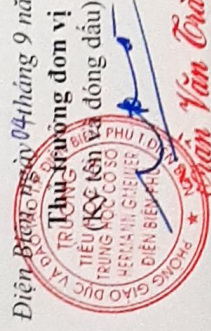 Điện Biên, ngày 04 tháng 9 nă
Thủ trưởng đơn vị
(Ký tên và đóng dấu)
PHÒNG GIÁO DỤC VÀ ĐÀO TẠO
ĐIỆN BIÊN PHỦ
TRƯỜNG
TIỂU HỌC VÀ
TRUNG HỌC CƠ SỞ
HERMANN GMEINER
ĐIỆN BIÊN PHỦ
Văn